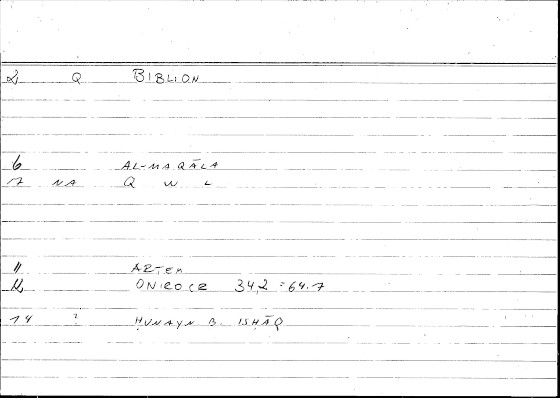 2 Q BIBLION
6 AL-MAQĀLA
7 NA Q W L
11 ARTEM
12 ONIROCR 34,2 = 64.7
14 ? ḤUNAYN B. ISḤĀQ